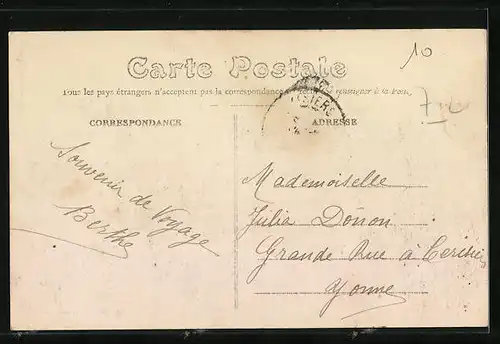 10
Carte Postale
Tous les pays étrangers n'acceptent pas la correspondance
à la Poste.
7
CORRESPONDANCE
ADRESSE
Souvenir de Voyage
Berthe
Mademoiselle
Julia Donon
Grande Rue à
Yonne